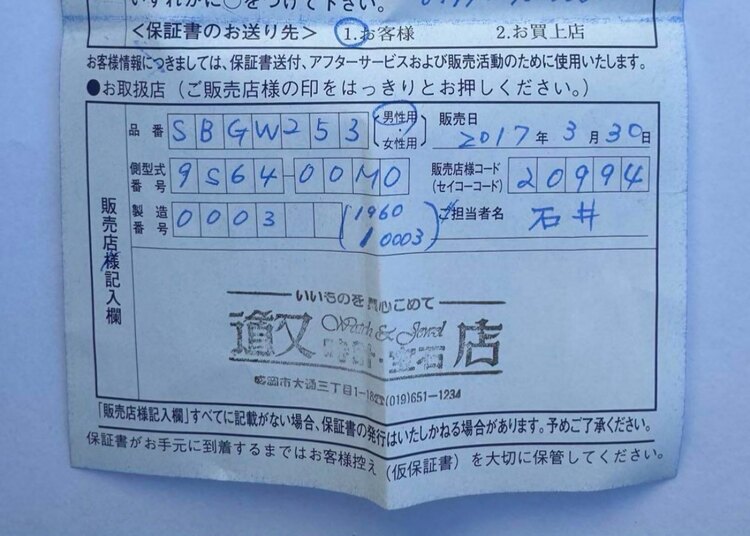 いずれかに○をつけて下さい。
<保証書のお送り先> 1.お客様 2.お買上店
お客様情報につきましては、保証書送付、アフターサービスおよび販売活動のために使用いたします。
●お取扱店（ご販売店様の印をはっきりとお押しください。）
販売店様記入欄
品番 SBGW253 男性用・女性用 販売日 2017年3月30日
側型式番号 9S64-00M0 販売店様コード（セイコーコード） 20994
製造番号 0003 (1960 10003) ご担当者名 石井
いいものを真心こめて
道又 Watch & Jewel 時計・宝石 店
盛岡市大通三丁目1-18 (019)651-1234
「販売店様記入欄」すべてに記載がない場合、保証書の発行はいたしかねる場合があります。予めご了承ください。
保証書がお手元に到着するまではお客様控え（仮保証書）を大切に保管してください。